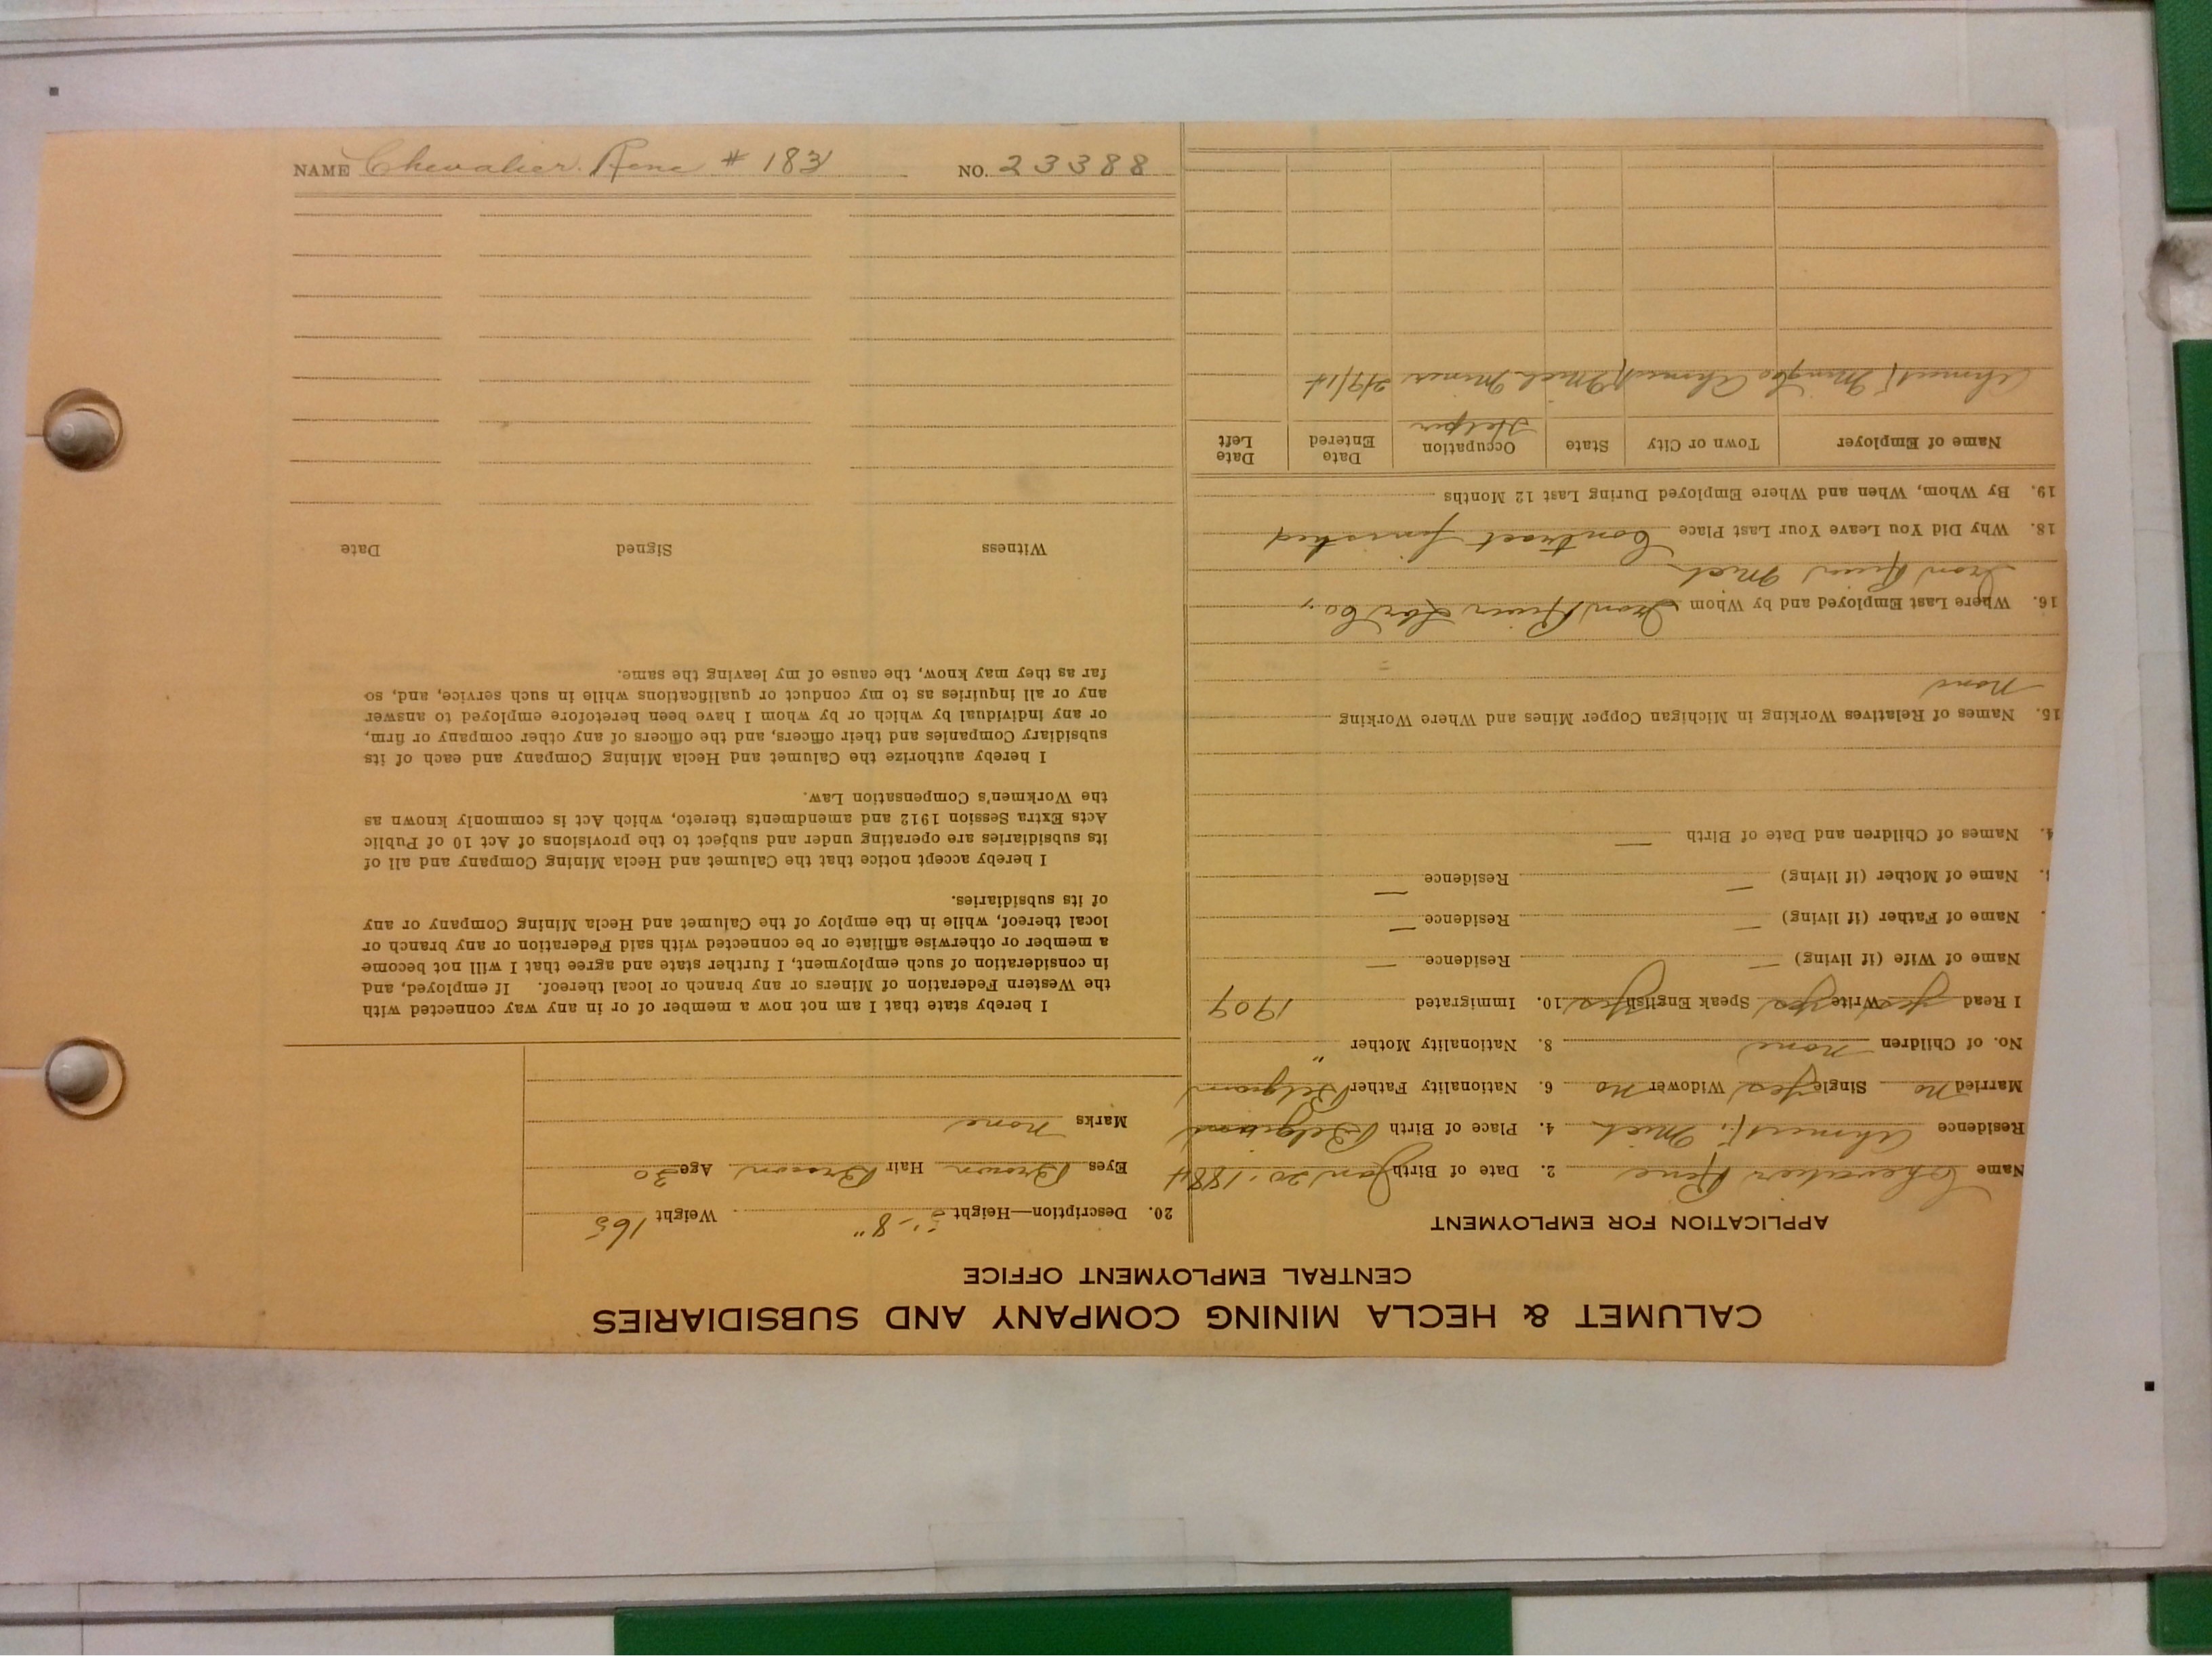 CALUMET & HECLA MINING COMPANY AND SUBSIDIARIES
CENTRAL EMPLOYMENT OFFICE
APPLICATION FOR EMPLOYMENT
Name Chevalier Rene 2. Date of Birth Jan 20. 1884
Residence Ahmeek, Mich 4. Place of Birth Belgium
Married No Single Yes Widower No 6. Nationality Father Belgium
No. of Children None 8. Nationality Mother "
I Read Yes Write Yes Speak English Yes 10. Immigrated 1909
Name of Wife (if living) — Residence —
Name of Father (if living) — Residence —
Name of Mother (if living) — Residence —
4. Names of Children and Date of Birth —
15. Names of Relatives Working in Michigan Copper Mines and Where Working
None
16. Where Last Employed and by Whom Iron River Co.,
Iron River Mich
18. Why Did You Leave Your Last Place Contract finished
19. By Whom, When and Where Employed During Last 12 Months
Name of Employer Town or City State Occupation Date Entered Date Left
Helper
Ahmeek Ming Co Ahmeek Mich Miner 2/9/14
20. Description—Height 5'-8" Weight 165
Eyes Brown Hair Brown Age 30
Marks None
I hereby state that I am not now a member of or in any way connected with
the Western Federation of Miners or any branch or local thereof. If employed, and
in consideration of such employment, I further state and agree that I will not become
a member or otherwise affiliate or be connected with said Federation or any branch or
local thereof, while in the employ of the Calumet and Hecla Mining Company or any
of its subsidiaries.
I hereby accept notice that the Calumet and Hecla Mining Company and all of
its subsidiaries are operating under and subject to the provisions of Act 10 of Public
Acts Extra Session 1912 and amendments thereto, which Act is commonly known as
the Workmen's Compensation Law.
I hereby authorize the Calumet and Hecla Mining Company and each of its
subsidiary Companies and their officers, and the officers of any other company or firm,
or any individual by which or by whom I have been heretofore employed to answer
any or all inquiries as to my conduct or qualifications while in such service, and, so
far as they may know, the cause of my leaving the same.
Witness Signed Date
NAME Chevalier. Rene # 183 NO. 23388